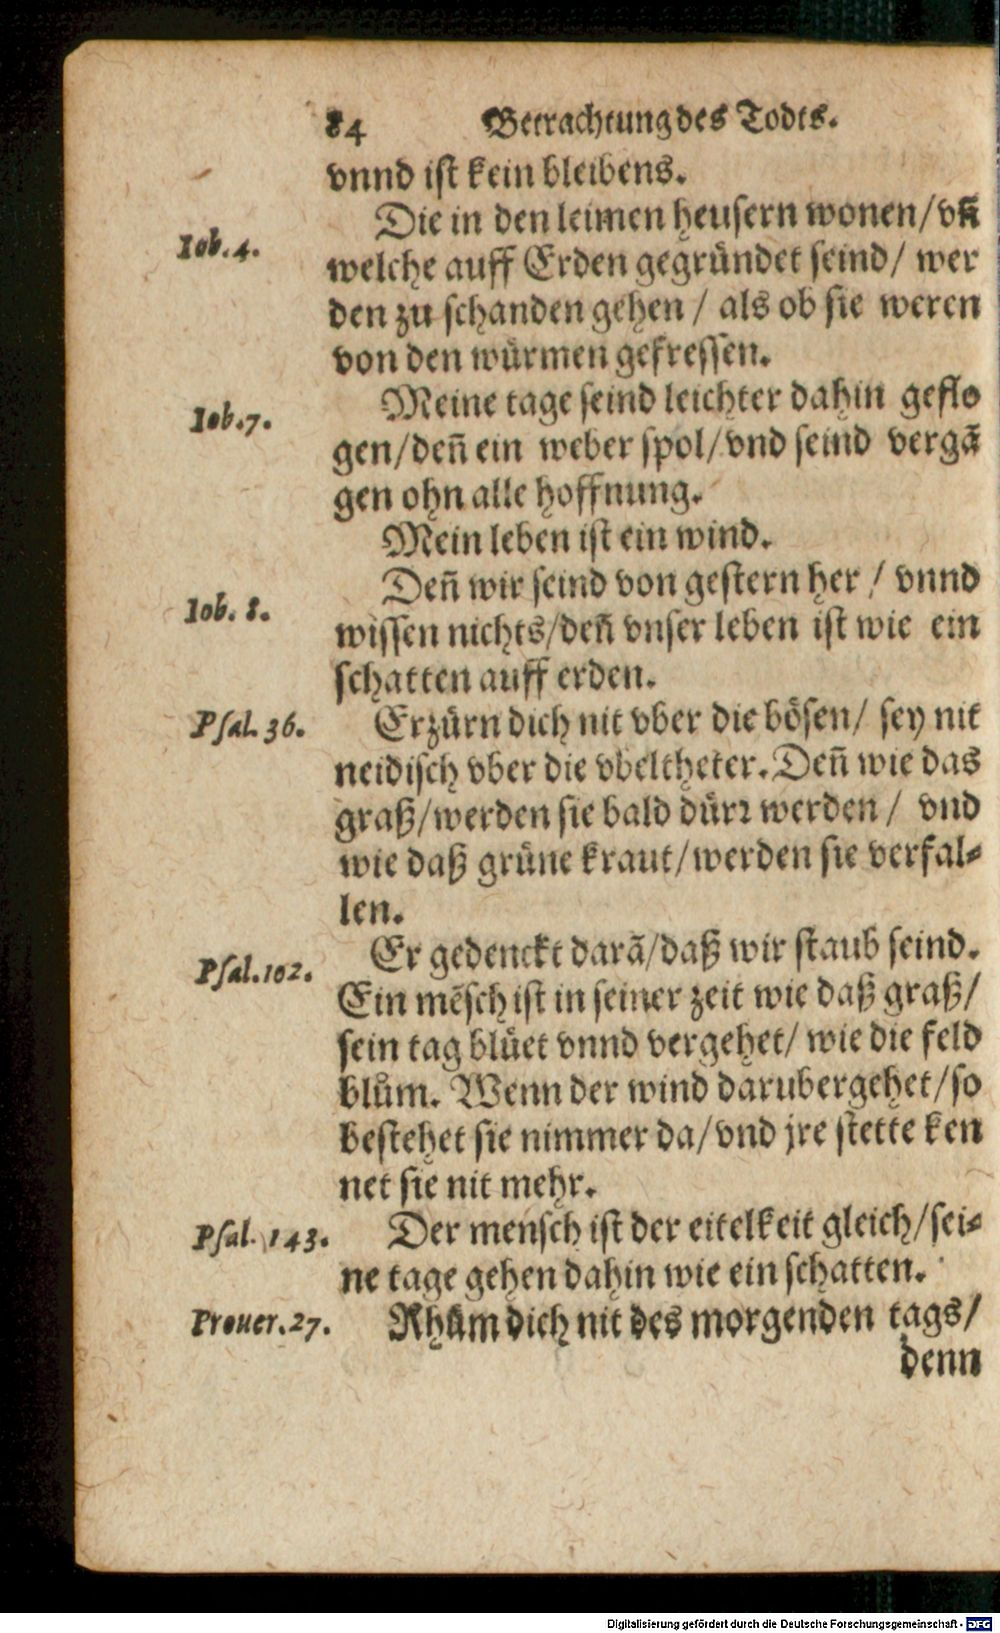 84 Betrachtung des Todts.
vnnd ist kein bleibens.
Die in den leimen heusern wonen/vñ
Iob.4.
welche auff Erden gegründet seind/ wer
den zu schanden gehen / als ob sie weren
von den würmen gefressen.
Meine tage seind leichter dahin geflo
Iob.7.
gen/deñ ein weber spol/vnd seind vergã
gen ohn alle hoffnung.
Mein leben ist ein wind.
Deñ wir seind von gestern her / vnnd
Iob. 8.
wissen nichts/deñ vnser leben ist wie ein
schatten auff erden.
Psal. 36.
Erzürn dich nit vber die bösen/ sey nit
neidisch vber die vbeltheter. Deñ wie das
graß/werden sie bald dürꝛ werden / vnd
wie daß grüne kraut/werden sie verfal⸗
len.
Er gedenckt darã/daß wir staub seind.
Psal.102.
Ein mẽsch ist in seiner zeit wie daß graß/
sein tag blüet vnnd vergehet/ wie die feld
blům. Wenn der wind darubergehet/so
bestehet sie nimmer da/vnd jre stette ken
net sie nit mehr.
Psal. 143.
Der mensch ist der eitelkeit gleich/sei⸗
ne tage gehen dahin wie ein schatten.
Prouer.27.
Rhům dich nit des morgenden tags/
denn
Digitalisierung gefördert durch die Deutsche Forschungsgemeinschaft - DFG